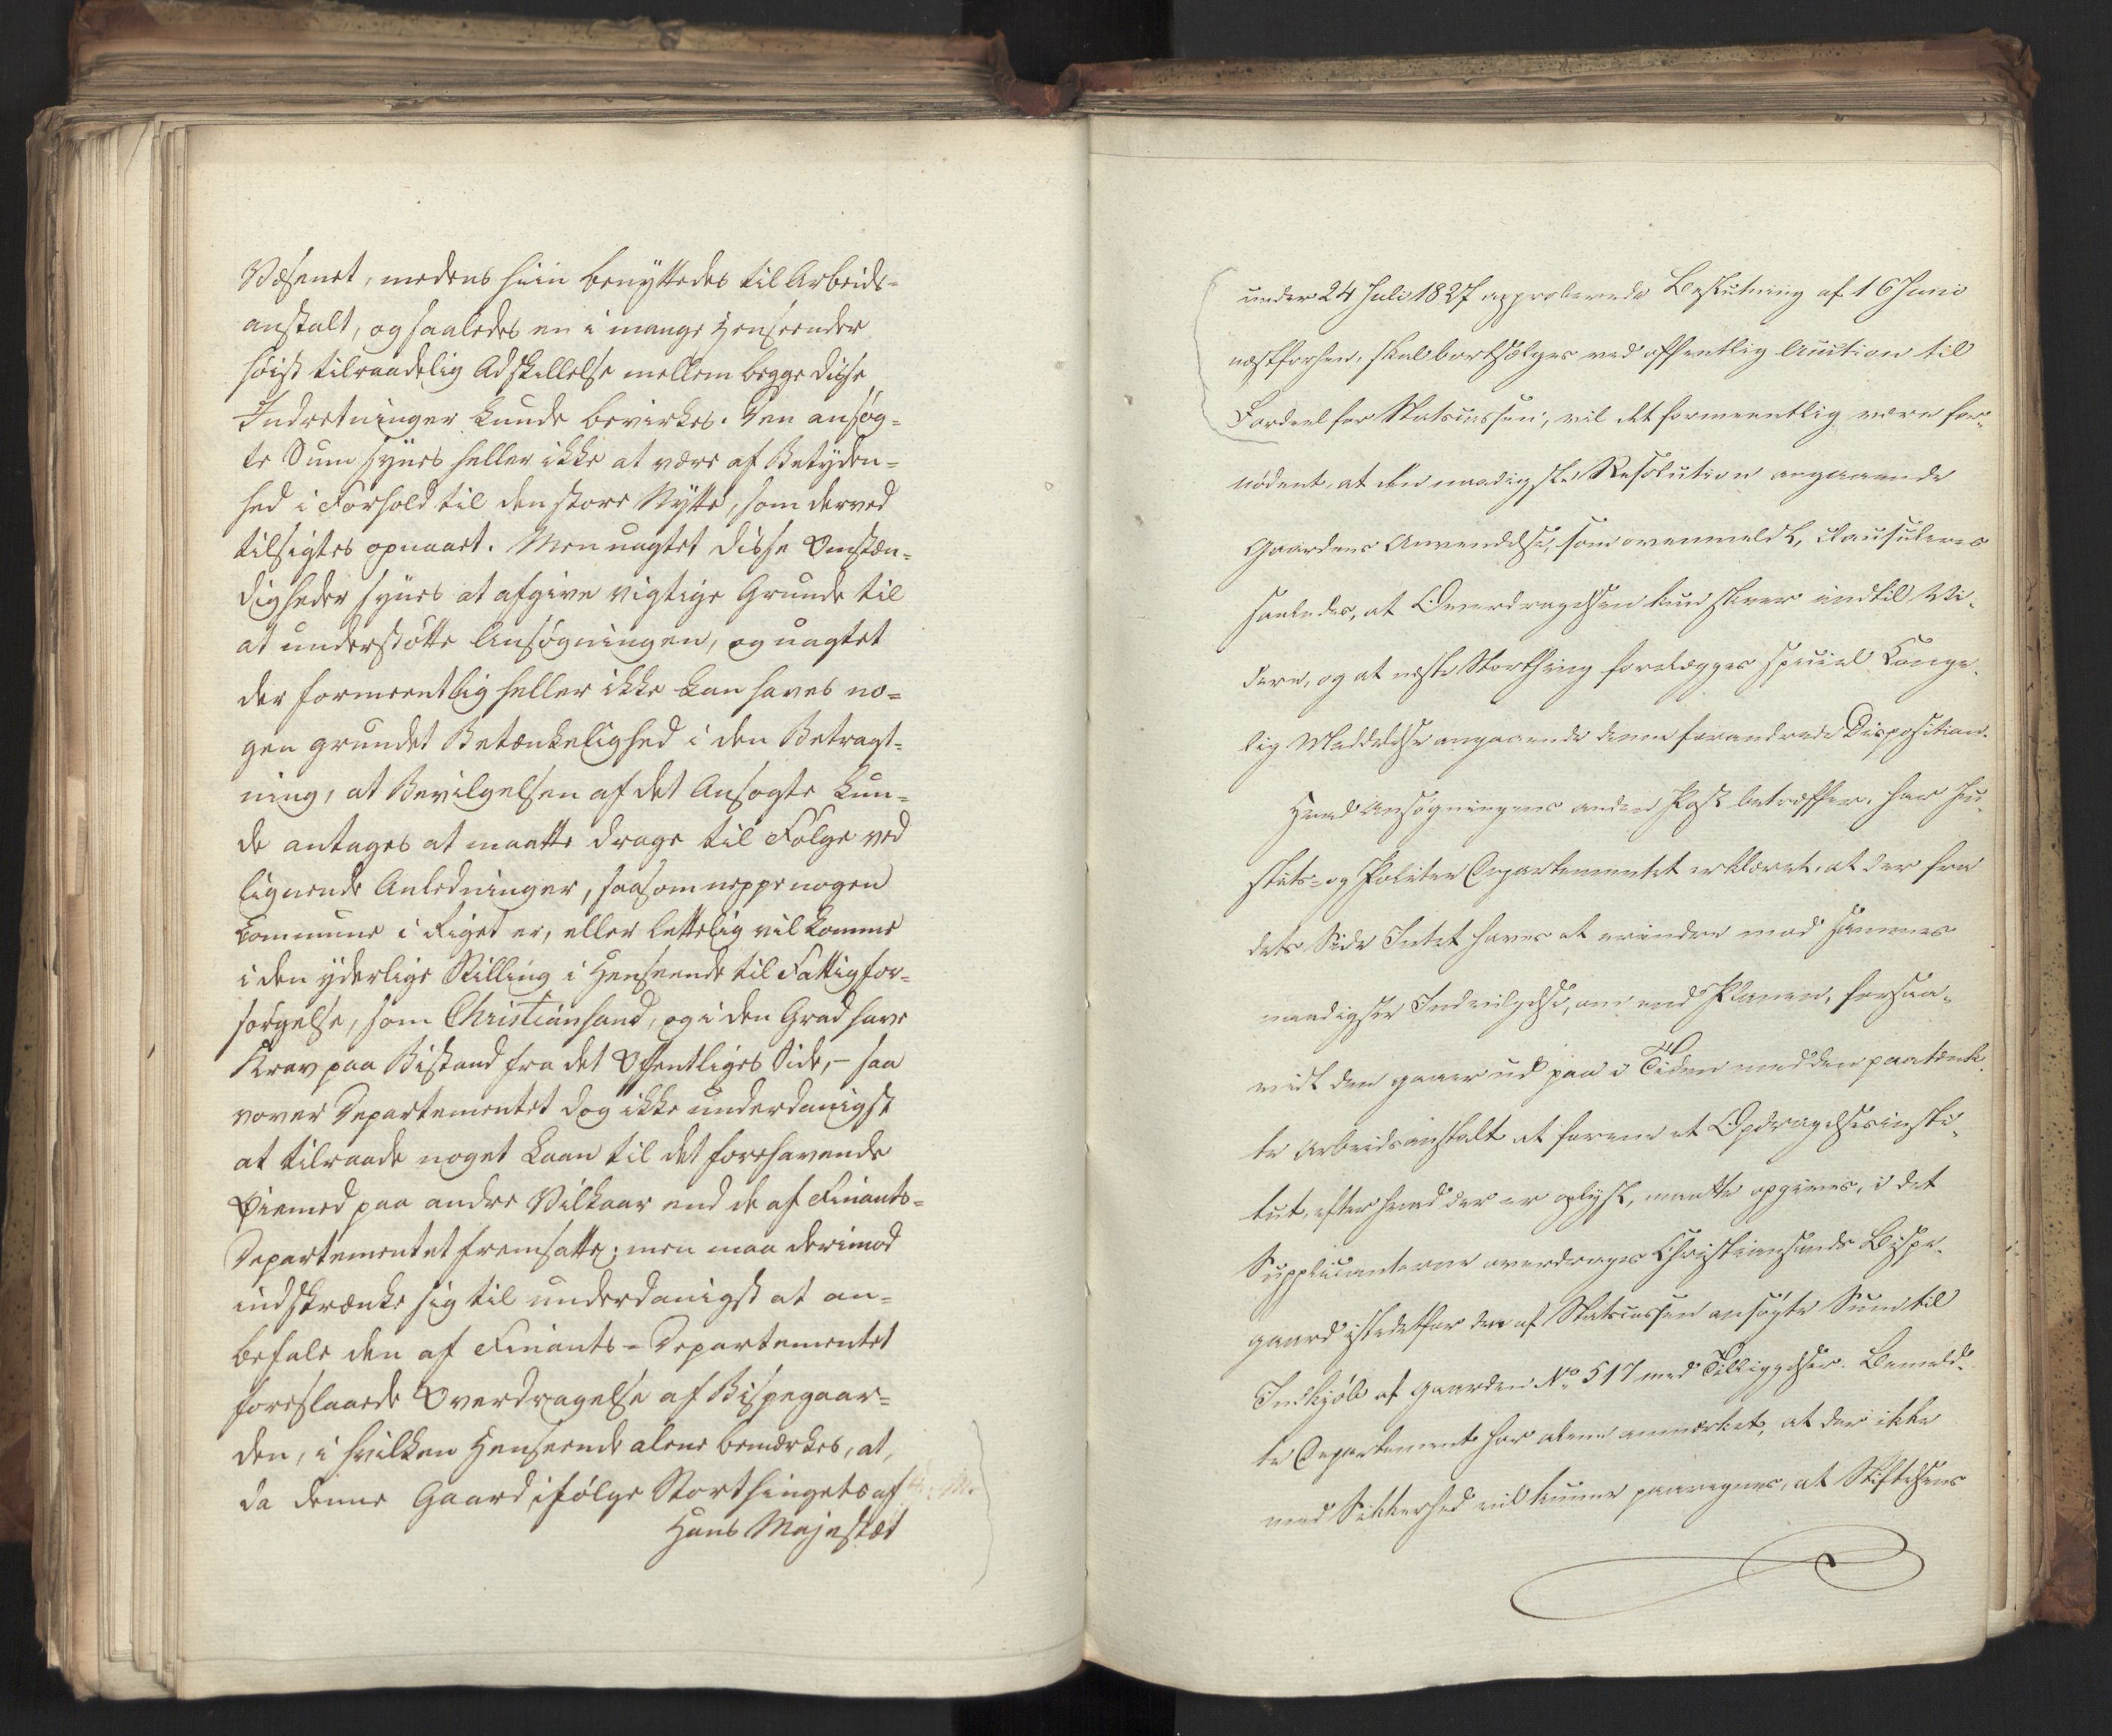 Væsenet, medens hiin benyttedes til Arbeids-
anstalt, og saaledes en i mange Henseender
høist tilraadelig Adskillelse mellem begge disse
Indretninger kunde bevirkes. Den ansøg-
te Sum synes heller ikke at være af Betyden-
hed i Forhold til den store Nytte, som derved
tilsigtes opnaaet. Men uagtet disse Omstæn-
digheder synes at afgive vigtige Grunde til
at understøtte Ansøgningen, og uagtet
der formeentlig heller ikke kan haves no-
gen grundet Betænkelighed i den Betragt-
ning, at Bevilgelsen af det Ansøgte kun-
de antages at maatte drage til Følge ved
lignende Anledninger, saasom neppe nogen
Commune i Riget er, eller lettelig vil komme
i den yderlige Stilling i Henseende til Fattigfor-
sørgelse, som Christiansand, og i den Grad have
Krav paa Bistand fra det Offentliges Side, – saa
vover Departementet dog ikke underdanigst
at tilraade noget Laan til det forehavende
Øiemed paa andre Vilkaar end de af Finants-
Departementet fremsatte; men maa derimod
indskrænke sig til underdanigst at an-
befale den af Finants-Departementet
foreslaaede Overdragelse af Bispegaar-
den, i hvilken Henseende alene bemærkes, at,
da denne Gaard ifølge Storthingets af
Hans Majestæt
under 24 Juli 1827 approberede Beslutning af 16 Juni
næstforhen, skal bortsælges ved offentlig Auction til
Fordeel for Statscassen, vil det formeentlig være for-
nødent, at den naadigste Resolution angaaende
Gaardens Anvendelse, som ovenmeldt, clausuleres
saaledes, at Overdragelsen kun skeer indtil Vi-
dere, og at næste Storthing forelægges speciel Konge-
lig Meddelelse angaaende denne forandrede Disposition.
Hvad Ansøgningens anden Post betræffer, har Ju-
stits- og Politie Departementet erklæret, at der fra
dets Side Intet haves at erindre mod sammes
naadigste Indvilgelse, om end Planen, forsaa-
vidt den gaaer ud paa i Tiden med den paatænk-
te Arbeidsanstalt at forene et Opdragelsesinsti-
tut, efter hvad der er oplyst, maatte opgives, i det
Supplicanterne overdrages Christiansands Bispe-
gaard istedetfor den af Statscassen ansøgte Sum til
Indkjøb af Gaarden No 517 med Tilliggelser. Bemeld-
te Departement har alene anmærket, at der ikke
med Sikkerhed vil kunne paaregnes, at Stiftelsens